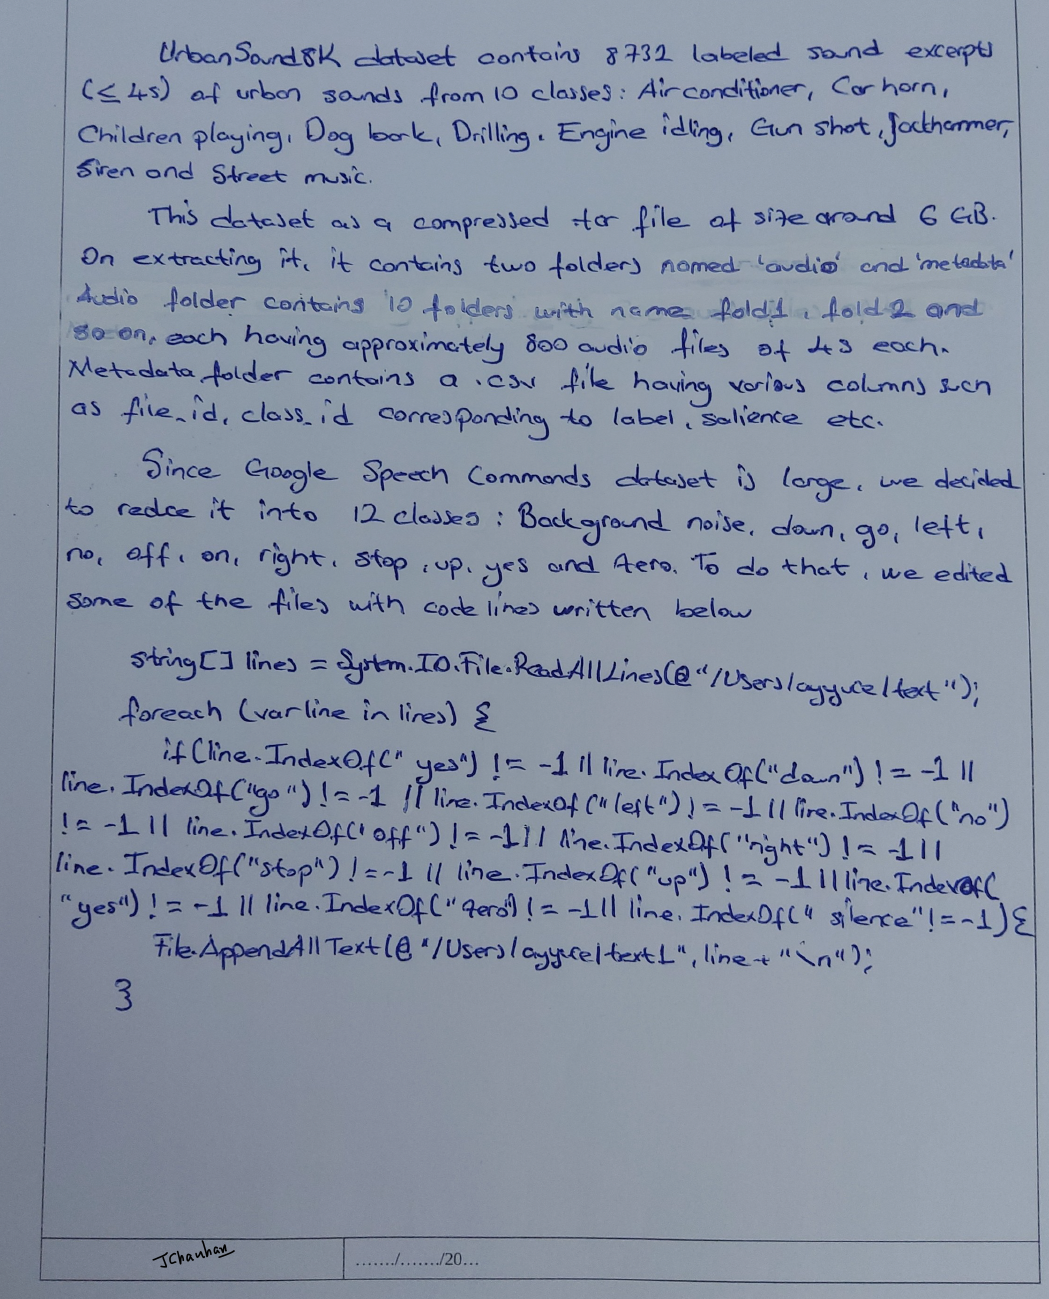 UrbanSound8K dataset contains 8732 labeled sound excerpts
(≤ 4s) of urban sounds from 10 classes: Air conditioner, Car horn,
Children playing, Dog bark, Drilling, Engine idling, Gun shot, Jackhammer,
Siren and Street music.
This dataset as a compressed tar file of size around 6 GB.
On extracting it, it contains two folders named 'audio' and 'metadata'
Audio folder contains 10 folders with name fold1, fold2 and
so on, each having approximately 800 audio files of 4s each.
Metadata folder contains a .csv file having various columns such
as file_id, class_id corresponding to label, salience etc.
Since Google Speech Commands dataset is large, we decided
to redce it into 12 classes: Background noise, down, go, left,
no, off, on, right, stop, up, yes and zero. To do that, we edited
some of the files with code lines written below
string[] lines = System.IO.File.ReadAllLines(@"/Users/ayyuce/text");
foreach (var line in lines) {
if (line.IndexOf(" yes") != -1 || line.IndexOf("down") != -1 ||
line.IndexOf("go") != -1 || line.IndexOf("left") != -1 || line.IndexOf("no")
!= -1 || line.IndexOf("off") != -1 || line.IndexOf("right") != -1 ||
line.IndexOf("stop") != -1 || line.IndexOf("up") != -1 || line.IndexOf(
"yes") != -1 || line.IndexOf("zero") != -1 || line.IndexOf(" silence" != -1) {
File.AppendAllText(@"/Users/ayyuce/text1", line + "\n");
}
JChauhan
......../......../20...